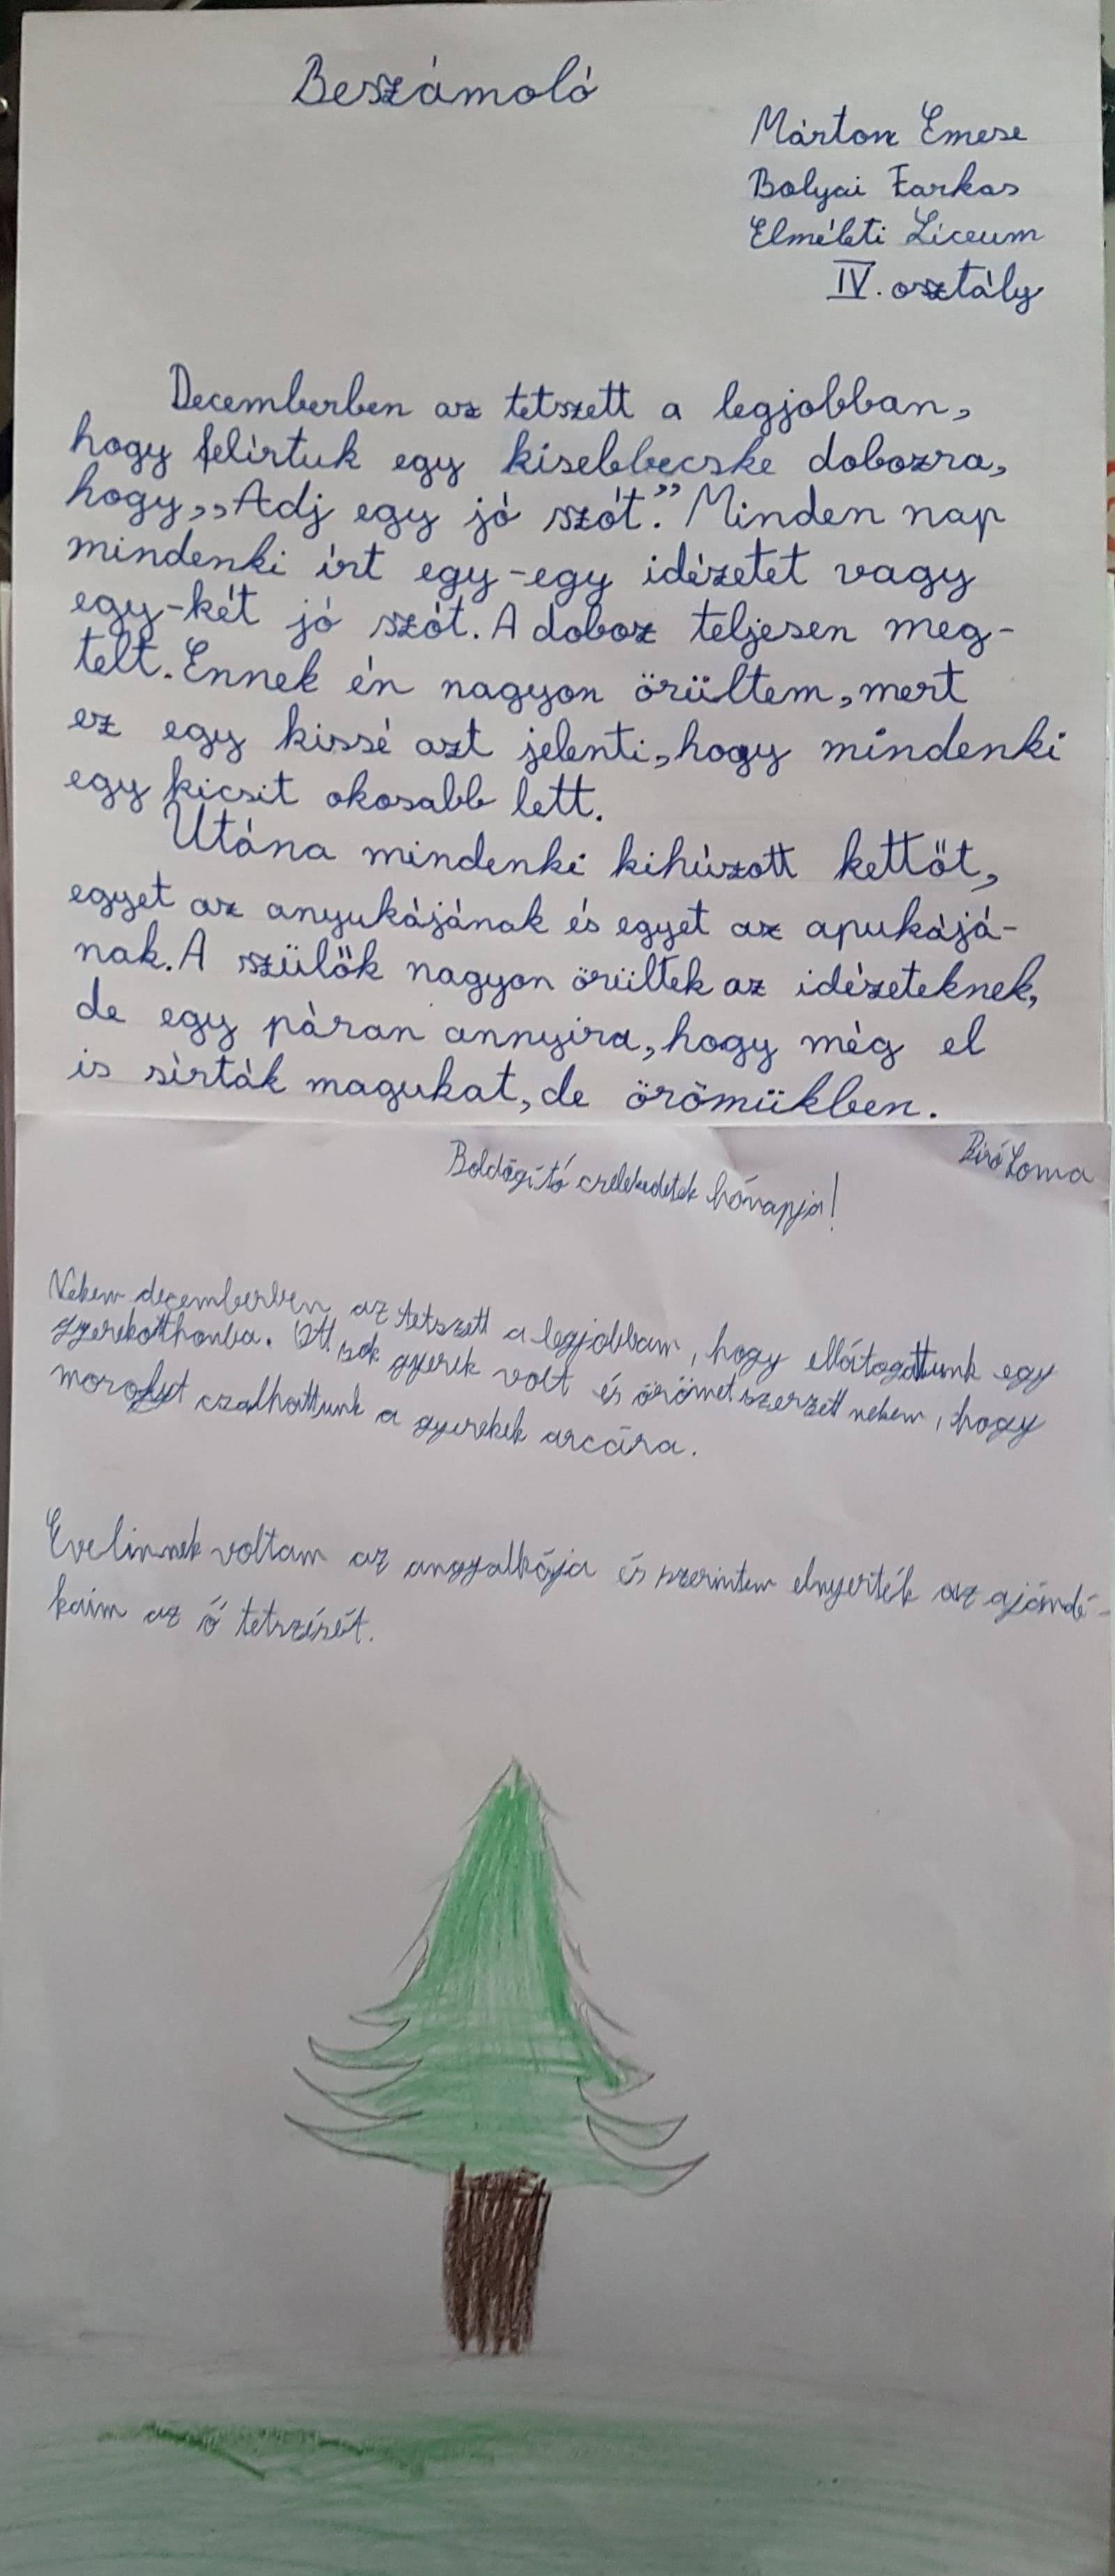 Beszámoló
Márton Emese
Bolyai Farkas
Elméleti Líceum
IV. osztály
Decemberben az tetszett a legjobban,
hogy felírtuk egy kisebbecske dobozra,
hogy,,,Adj egy jó szót." Minden nap
mindenki írt egy-egy idézetet vagy
egy-két jó szót. A doboz teljesen meg-
telt. Ennek én nagyon örültem, mert
ez egy kissé azt jelenti, hogy mindenki
egy kicsit okosabb lett.
Utána mindenki kihúzott kettőt,
egyet az anyukájának és egyet az apukájá-
nak. A szülők nagyon örültek az idézeteknek,
de egy páran annyira, hogy még el
is sírták magukat, de örömükben.
Biró
Boldogító cselekedetek hónapja!
Nekem decemberben az tetszett a legjobban, hogy ellátogattunk egy
gyerekotthonba. Ott sok gyerek volt és örömet szerzett nekem, hogy
mosolyt csalhattunk a gyerekek arcára.
Evelinnek voltam az angyalkája és szerintem elnyerték az ajándé-
kaim az ő tetszését.